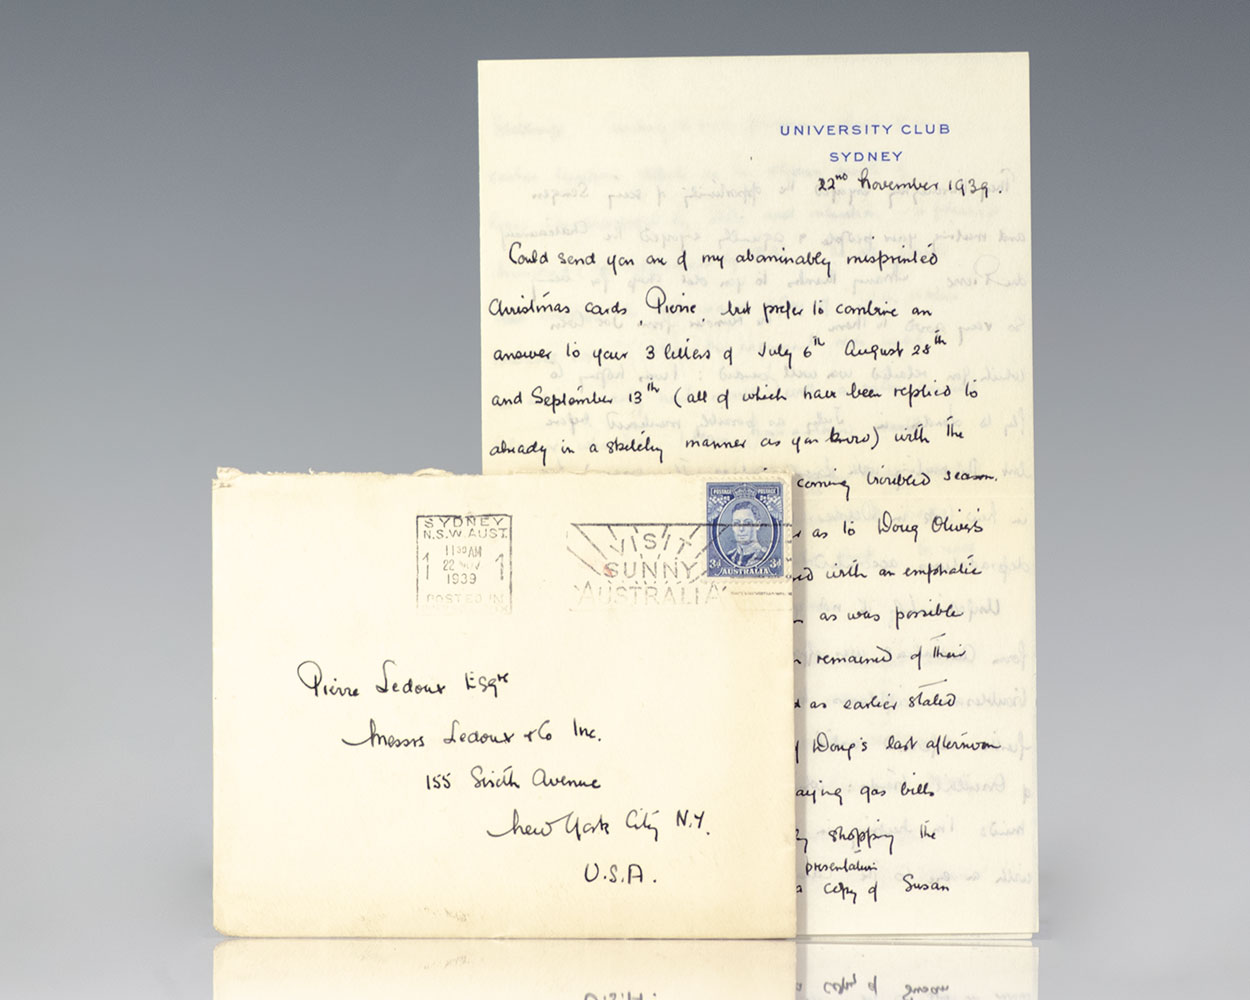 UNIVERSITY CLUB
SYDNEY
22nd November 1939.
Could send you one of my abominably misprinted
Christmas cards, Pierre, but prefer to combine an
answer to your 3 letters of July 6th August 28th
and September 13th (all of which have been replied to
already in a sketchy manner as you know) with the
coming troubled season.
as to Doug Oliver's
with an emphatic
as was possible
remained of their
as earlier stated
Doug's last afternoon
paying gas bills
shopping the
presentation
copy of Susan
SYDNEY
N.S.W. AUST.
1 1130AM 1
22 NOV
1939
POSTED IN
VISIT
SUNNY
AUSTRALIA
POSTAGE POSTAGE
3d 3d
AUSTRALIA
Pierre Ledoux Esqre
Messrs Ledoux & Co Inc.
155 Sixth Avenue
New York City N.Y.
U.S.A.